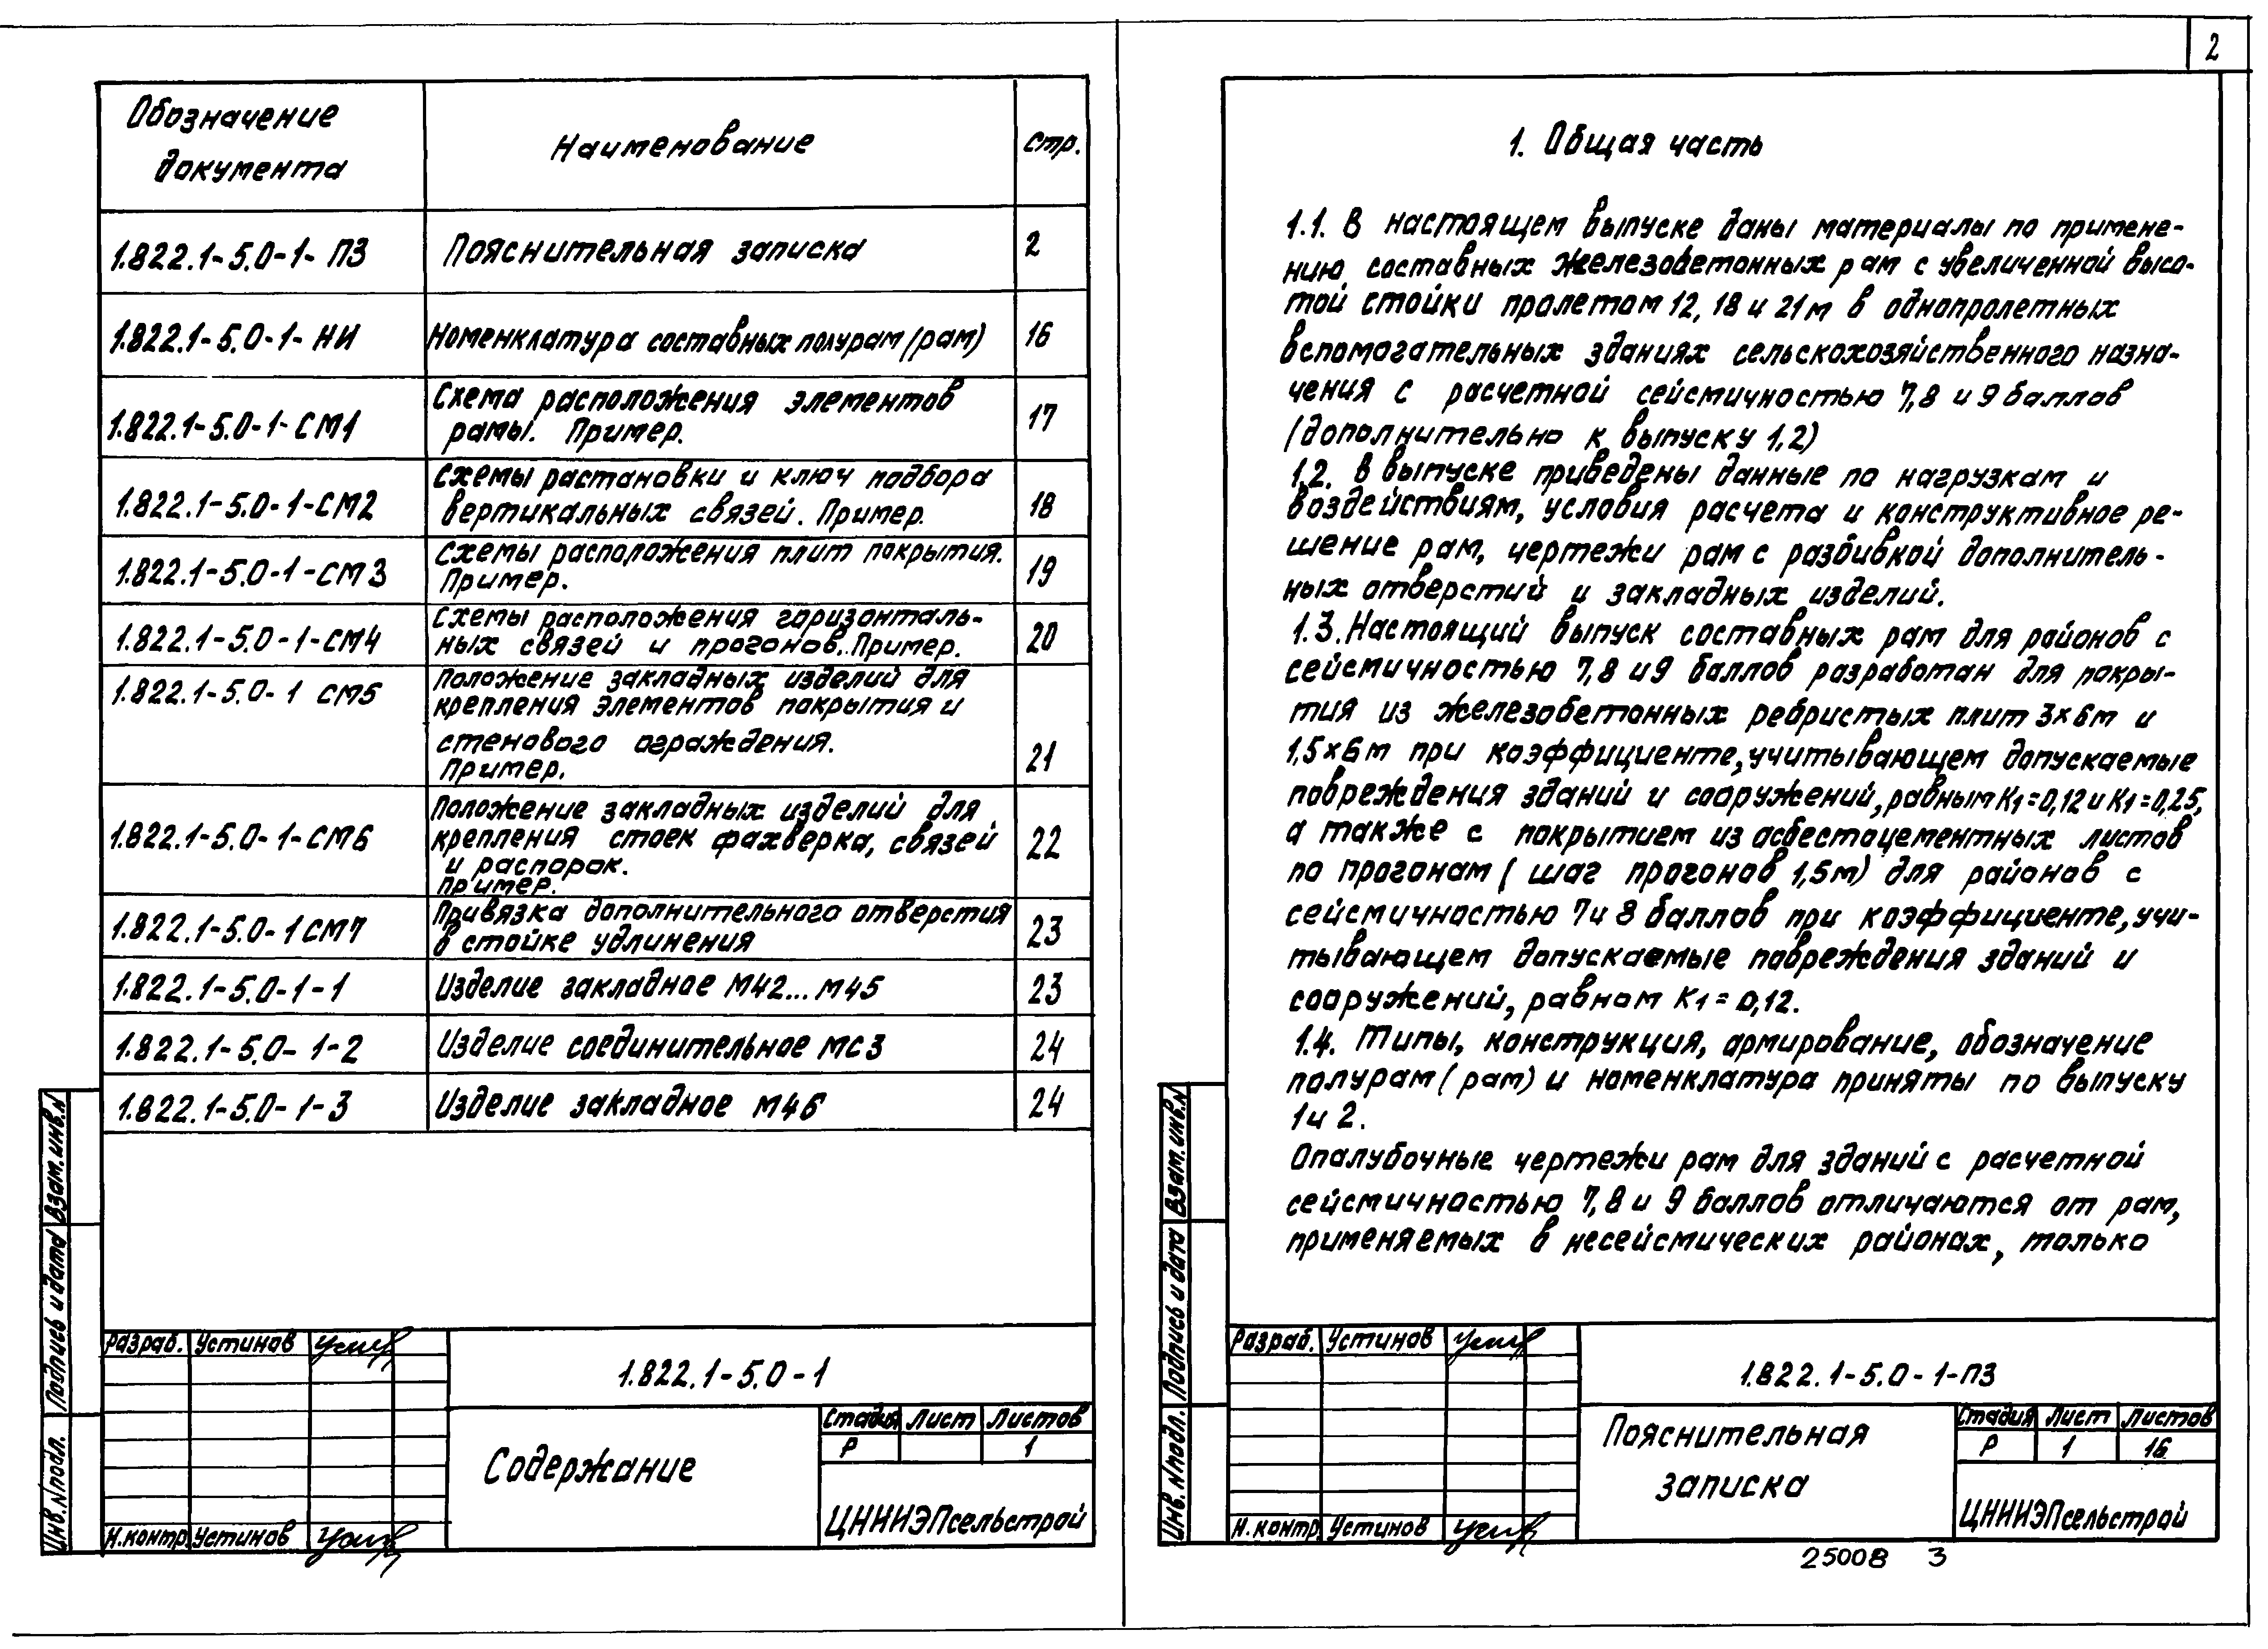 2
Обозначение документа Наименование Стр.
1.822.1-5.0-1-ПЗ Пояснительная записка 2
1.822.1-5.0-1-НИ Номенклатура составных полурам (рам) 16
1.822.1-5.0-1-СМ1 Схема расположения элементов
рамы. Пример. 17
1.822.1-5.0-1-СМ2 Схемы растановки и ключ подбора
вертикальных связей. Пример. 18
1.822.1-5.0-1-СМ3 Схемы расположения плит покрытия.
Пример. 19
1.822.1-5.0-1-СМ4 Схемы расположения горизонталь-
ных связей и прогонов. Пример. 20
1.822.1-5.0-1 СМ5 Положение закладных изделий для
крепления элементов покрытия и
стенового ограждения.
Пример. 21
1.822.1-5.0-1-СМ6 Положение закладных изделий для
крепления стоек фахверка, связей
и распорок.
Пример. 22
1.822.1-5.0-1СМ7 Привязка дополнительного отверстия
в стойке удлинения 23
1.822.1-5.0-1-1 Изделие закладное М42...М45 23
1.822.1-5.0-1-2 Изделие соединительное МС3 24
1.822.1-5.0-1-3 Изделие закладное М46 24
Взам. инв.N
Подпись и дата
Инв. N подл.
Разраб. Устинов
1.822.1-5.0-1
Содержание
Стадия Лист Листов
Р 1
ЦНИИЭПсельстрой
Н.контр. Устинов
1. Общая часть
1.1. В настоящем выпуске даны материалы по примене-
нию составных железобетонных рам с увеличенной высо-
той стойки пролетом 12, 18 и 21м в однопролетных
вспомогательных зданиях сельскохозяйственного назна-
чения с расчетной сейсмичностью 7,8 и 9 баллов
(дополнительно к выпуску 1,2)
1.2. В выпуске приведены данные по нагрузкам и
воздействиям, условия расчета и конструктивное ре-
шение рам, чертежи рам с разбивкой дополнитель-
ных отверстий и закладных изделий.
1.3. Настоящий выпуск составных рам для районов с
сейсмичностью 7,8 и 9 баллов разработан для покры-
тия из железобетонных ребристых плит 3×6м и
1,5×6м при коэффициенте, учитывающем допускаемые
повреждения зданий и сооружений, равным К1=0,12 и К1=0,25,
а также с покрытием из асбестоцементных листов
по прогонам (шаг прогонов 1,5м) для районов с
сейсмичностью 7 и 8 баллов при коэффициенте, учи-
тывающем допускаемые повреждения зданий и
сооружений, равном К1=0,12.
1.4. Типы, конструкция, армирование, обозначение
полурам (рам) и номенклатура приняты по выпуску
1 и 2.
Опалубочные чертежи рам для зданий с расчетной
сейсмичностью 7,8 и 9 баллов отличаются от рам,
применяемых в несейсмических районах, только
Взам. инв.N
Подпись и дата
Инв. N подл.
Разраб. Устинов
1.822.1-5.0-1-ПЗ
Пояснительная
записка
Стадия Лист Листов
Р 1 16
ЦНИИЭПсельстрой
Н.контр. Устинов
25008 3